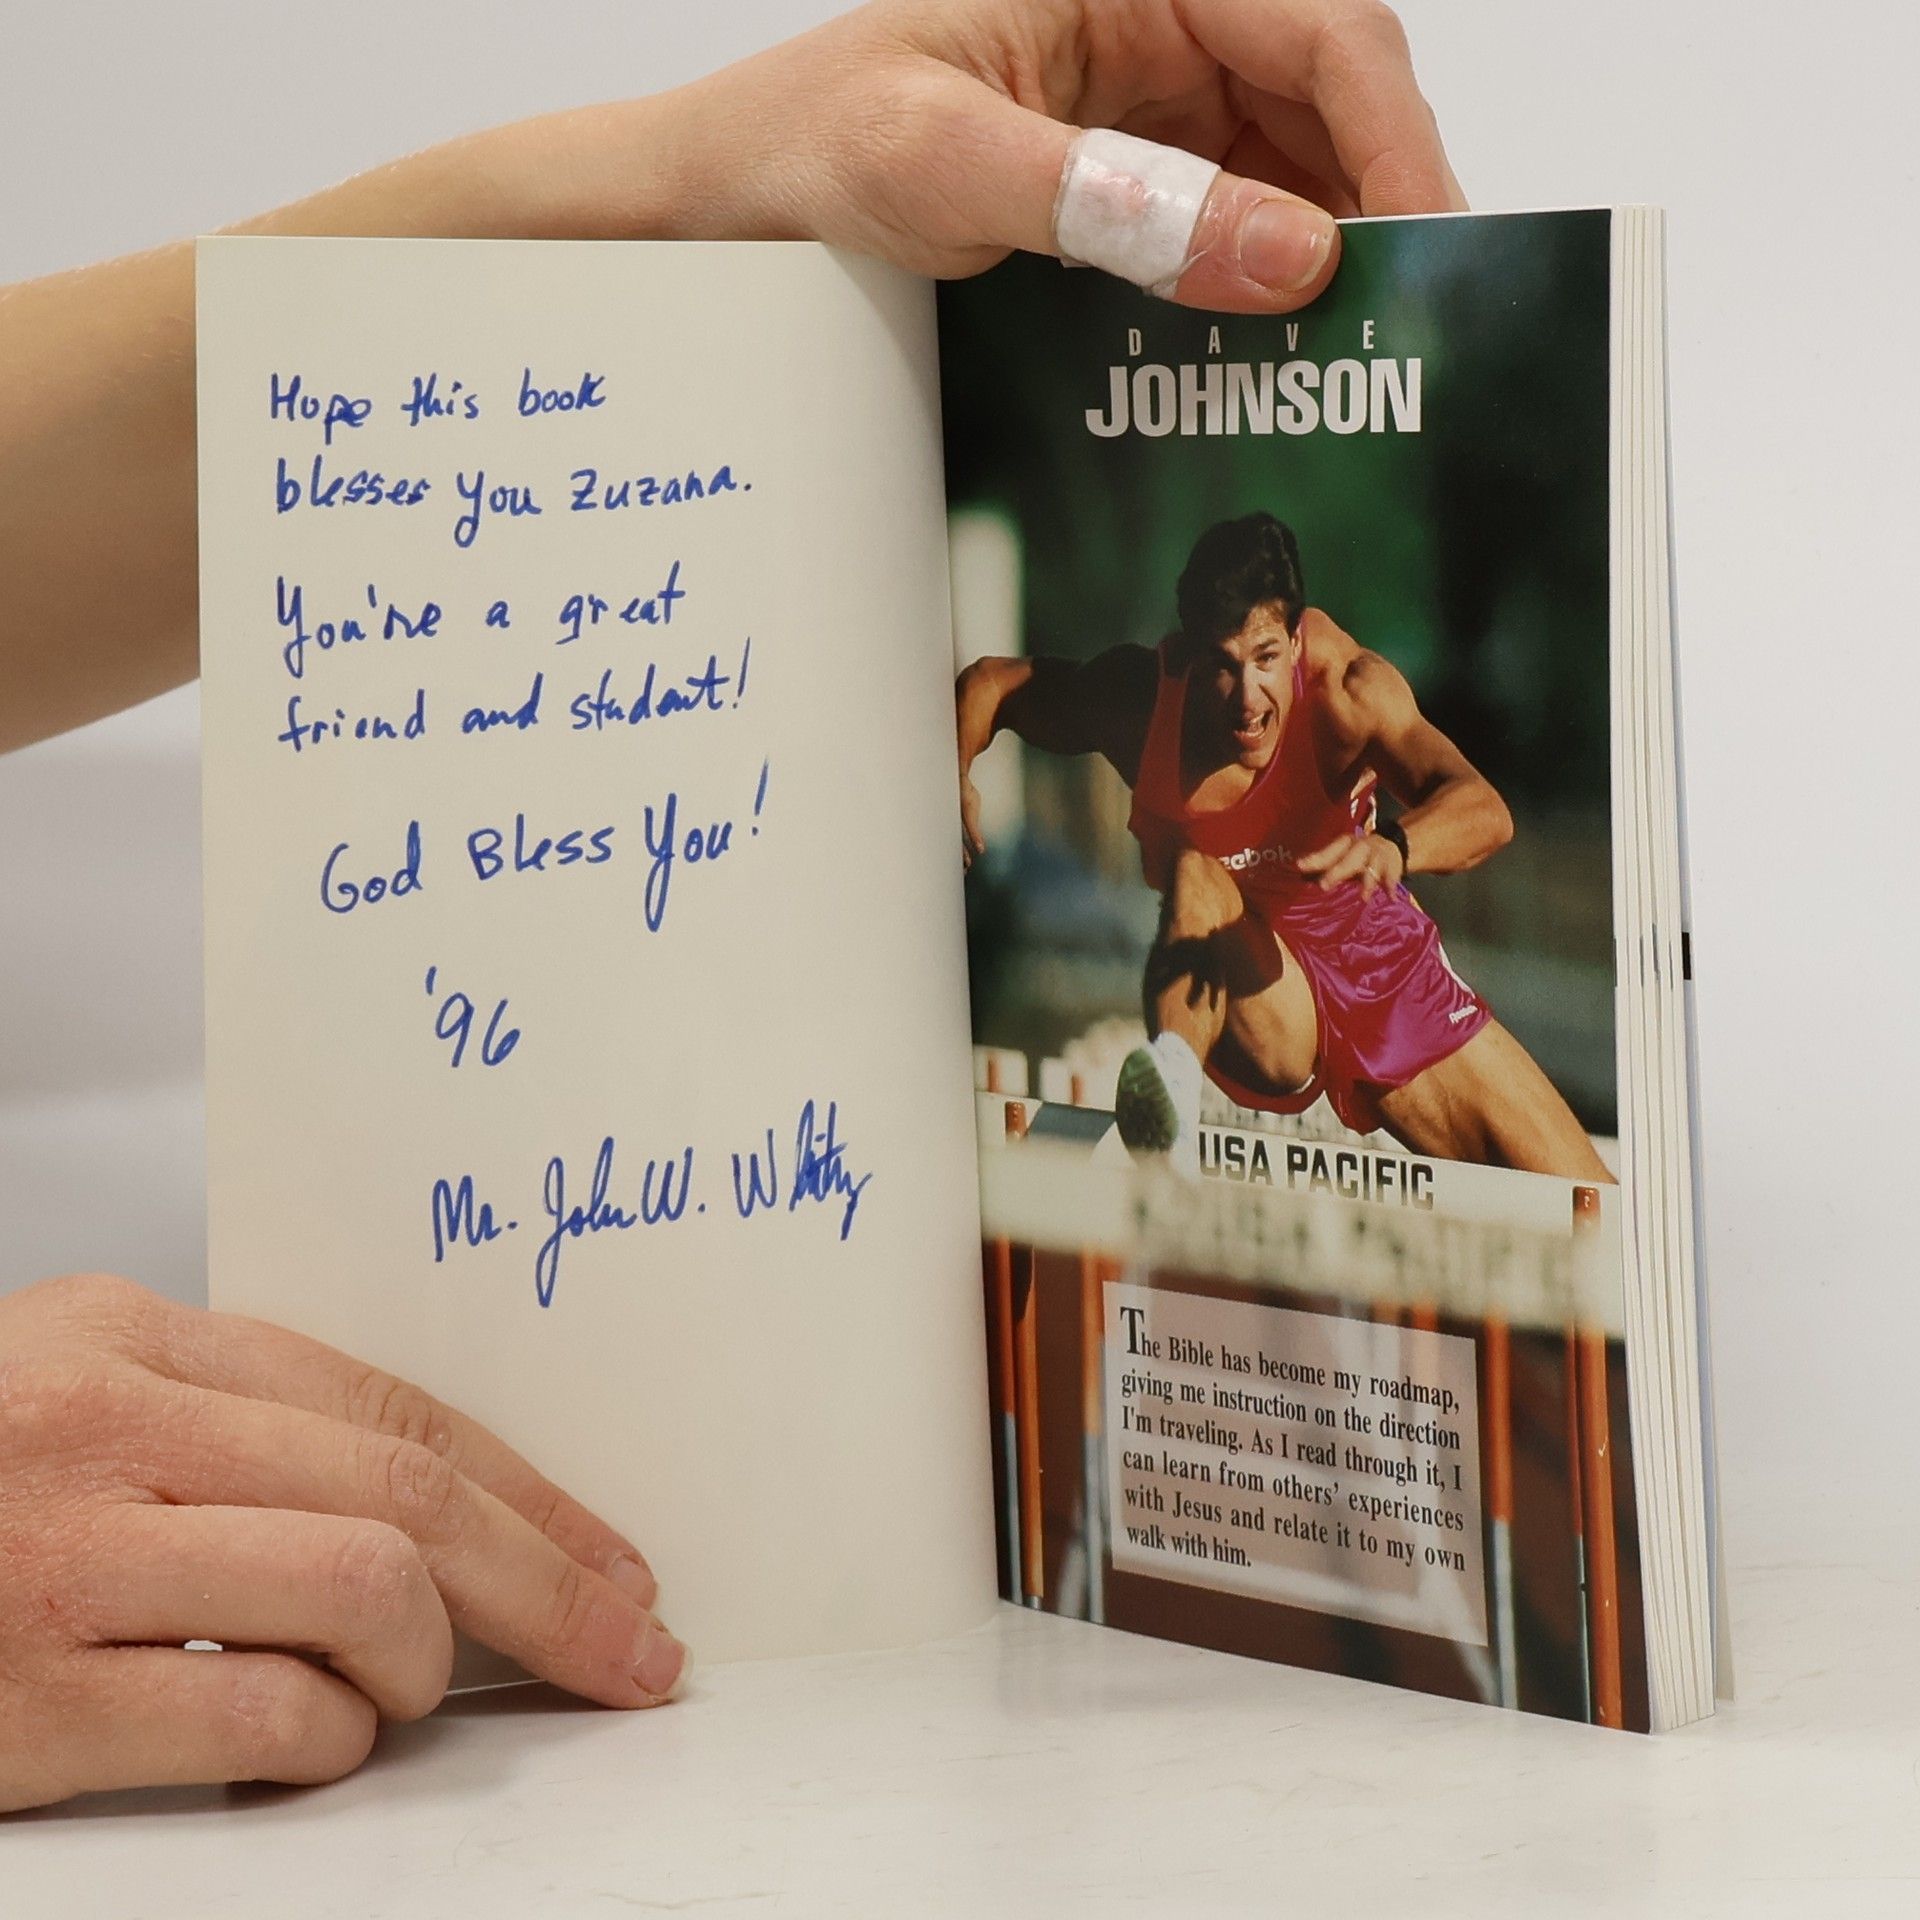 Hope this book
blesses you Zuzana.
You're a great
friend and student!
God Bless You!
'96
Mr. John W.
DAVE
JOHNSON
Reebok
USA PACIFIC
The Bible has become my roadmap,
giving me instruction on the direction
I'm traveling. As I read through it, I
can learn from others' experiences
with Jesus and relate it to my own
walk with him.